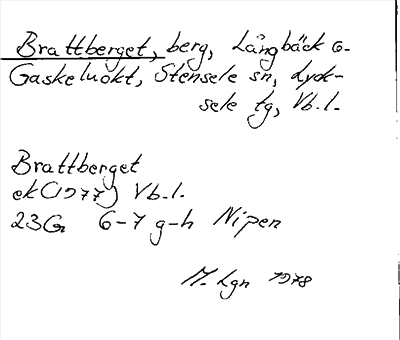 Brattberget, berg, Långbäck o.
Gaskeluokt, Stensele sn, Lyck-
sele tg, Vb.l.
Brattberget
ek (1977) Vb.l.
23G 6-7 g-h Nipen
M. Lgn 1978